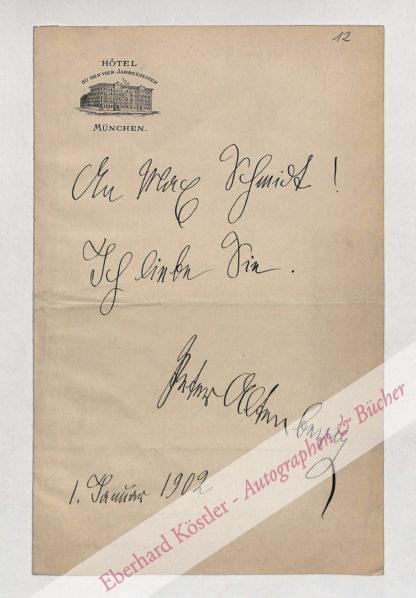 12
HÔTEL
ZU DEN VIER JAHRESZEITEN
MÜNCHEN.
An Max Schmidt!
Ich liebe Sie.
Peter Altenberg
1. Januar 1902
Eberhard Köstler - Autographen & Bücher